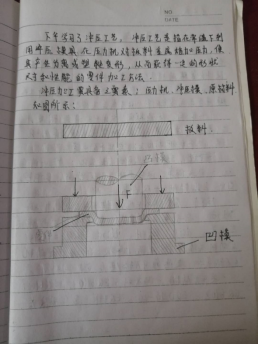 NO.
DATE
下午学习了冲压工艺。冲压工艺是指在常温下利
用冲压模具在压力机对板料金属施加压力，使
其产生分离或塑性变形，从而获得一定的形状
尺寸和性能的零件加工方法。
冲压加工需具备三要素：压力机、冲压模、原材料
如图所示：
板料
凸模
F
凹模